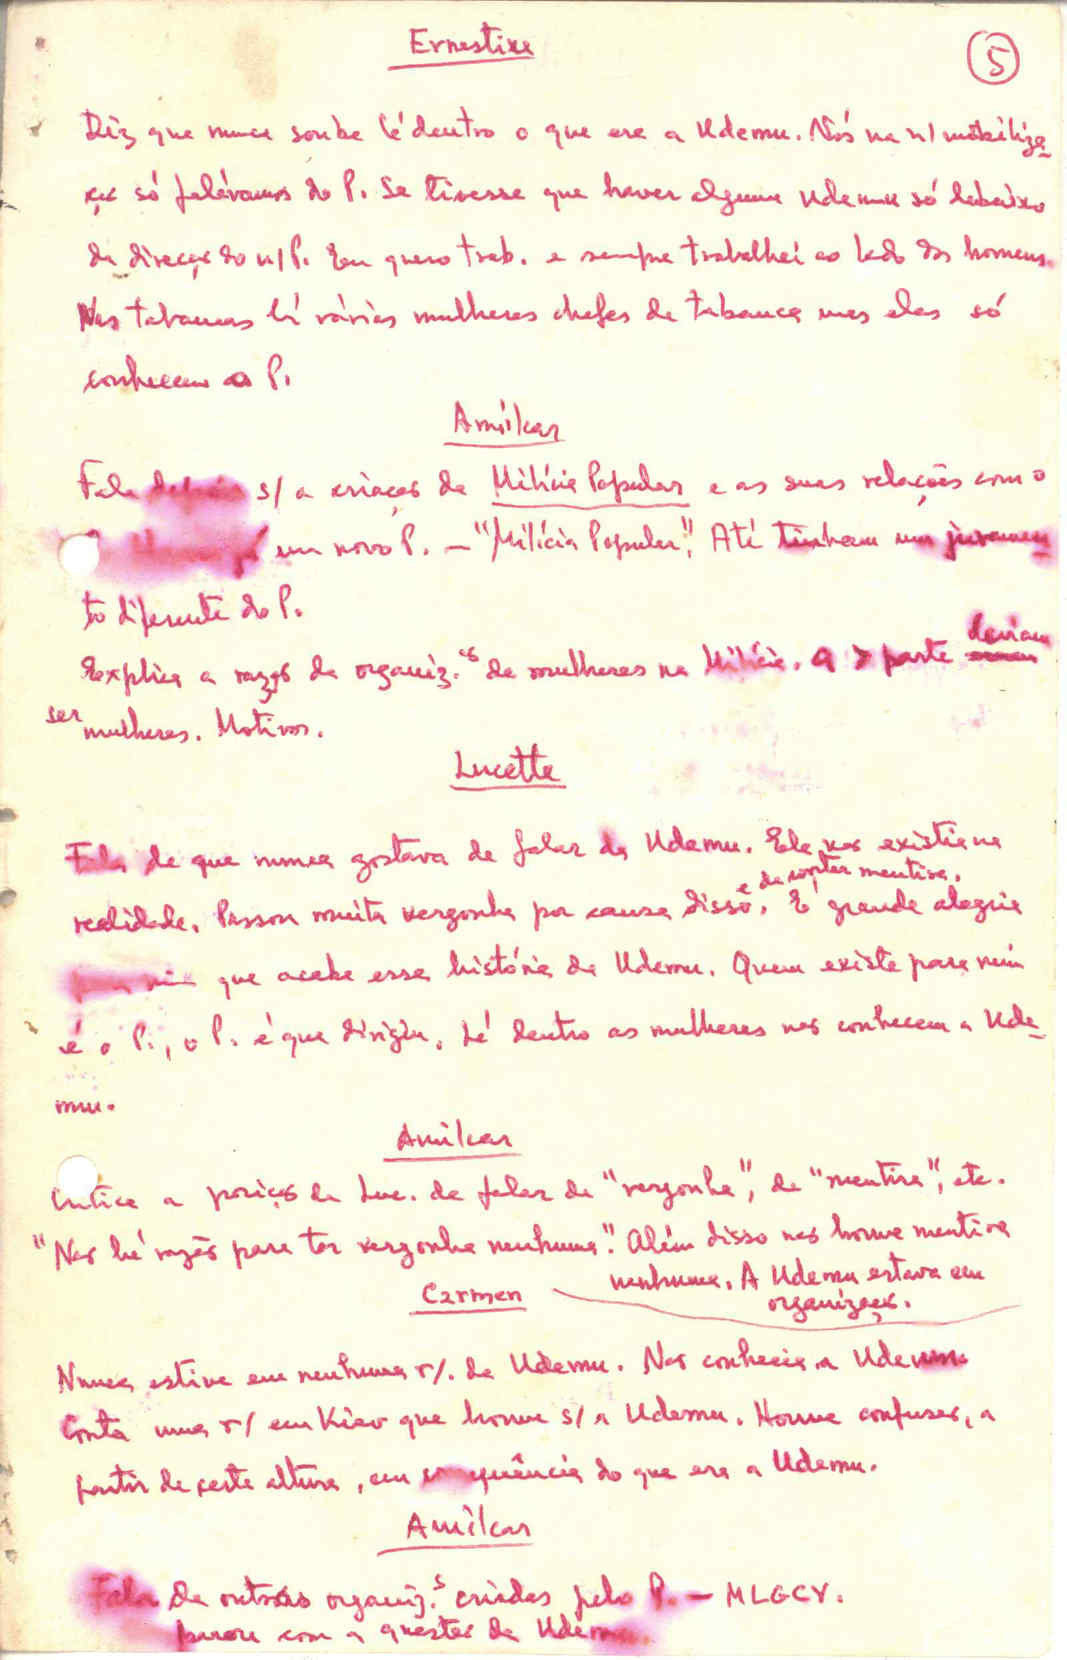 Ernestina
5
Diz que nunca soube lá dentro o que era a Udemu. Nós na n/ mobiliza-
ção só falávamos do P. Se tivesse que haver alguma Udemu só debaixo
da direcção do n/P. Eu quero trab. e sempre trabalhei ao lado dos homens.
Nas tabancas há várias mulheres chefes de tabanca mas elas só
conhecem o P.
Amílcar
Fala s/ a criação da Milícia Popular e as suas relações com o
um novo P. - "Milícia Popular". Até tinham um juramen
to diferente do P.
Explica a razão da organiz.ão de mulheres na Milícia. a > parte deviam
ser mulheres. Motivos.
Lucette
Fala de que nunca gostava de falar da Udemu. Ela não existia na
realidade. Passou muita vergonha por causa disso, e de contar mentira. É grande alegria
para mim que acabe essa história da Udemu. Quem existe para mim
é o P., o P. é que dirigiu. Lá dentro as mulheres não conhecem a Ude-
mu.
Amílcar
Critica a posição da Luc. de falar de "vergonha", de "mentira", etc.
"Não há razão para ter vergonha nenhuma". Além disso não houve mentira
nenhuma. A Udemu estava em
organização.
Carmen
Nunca estive em nenhuma r/. da Udemu. Não conhecia a Udemu.
Conta uma r/ em Kiev que houve s/ a Udemu. Houve confusão, a
partir de certa altura, em consequência do que era a Udemu.
Amílcar
Fala de outras organiz.s criadas pelo P. - MLGCV.
com a questão da Udemu.